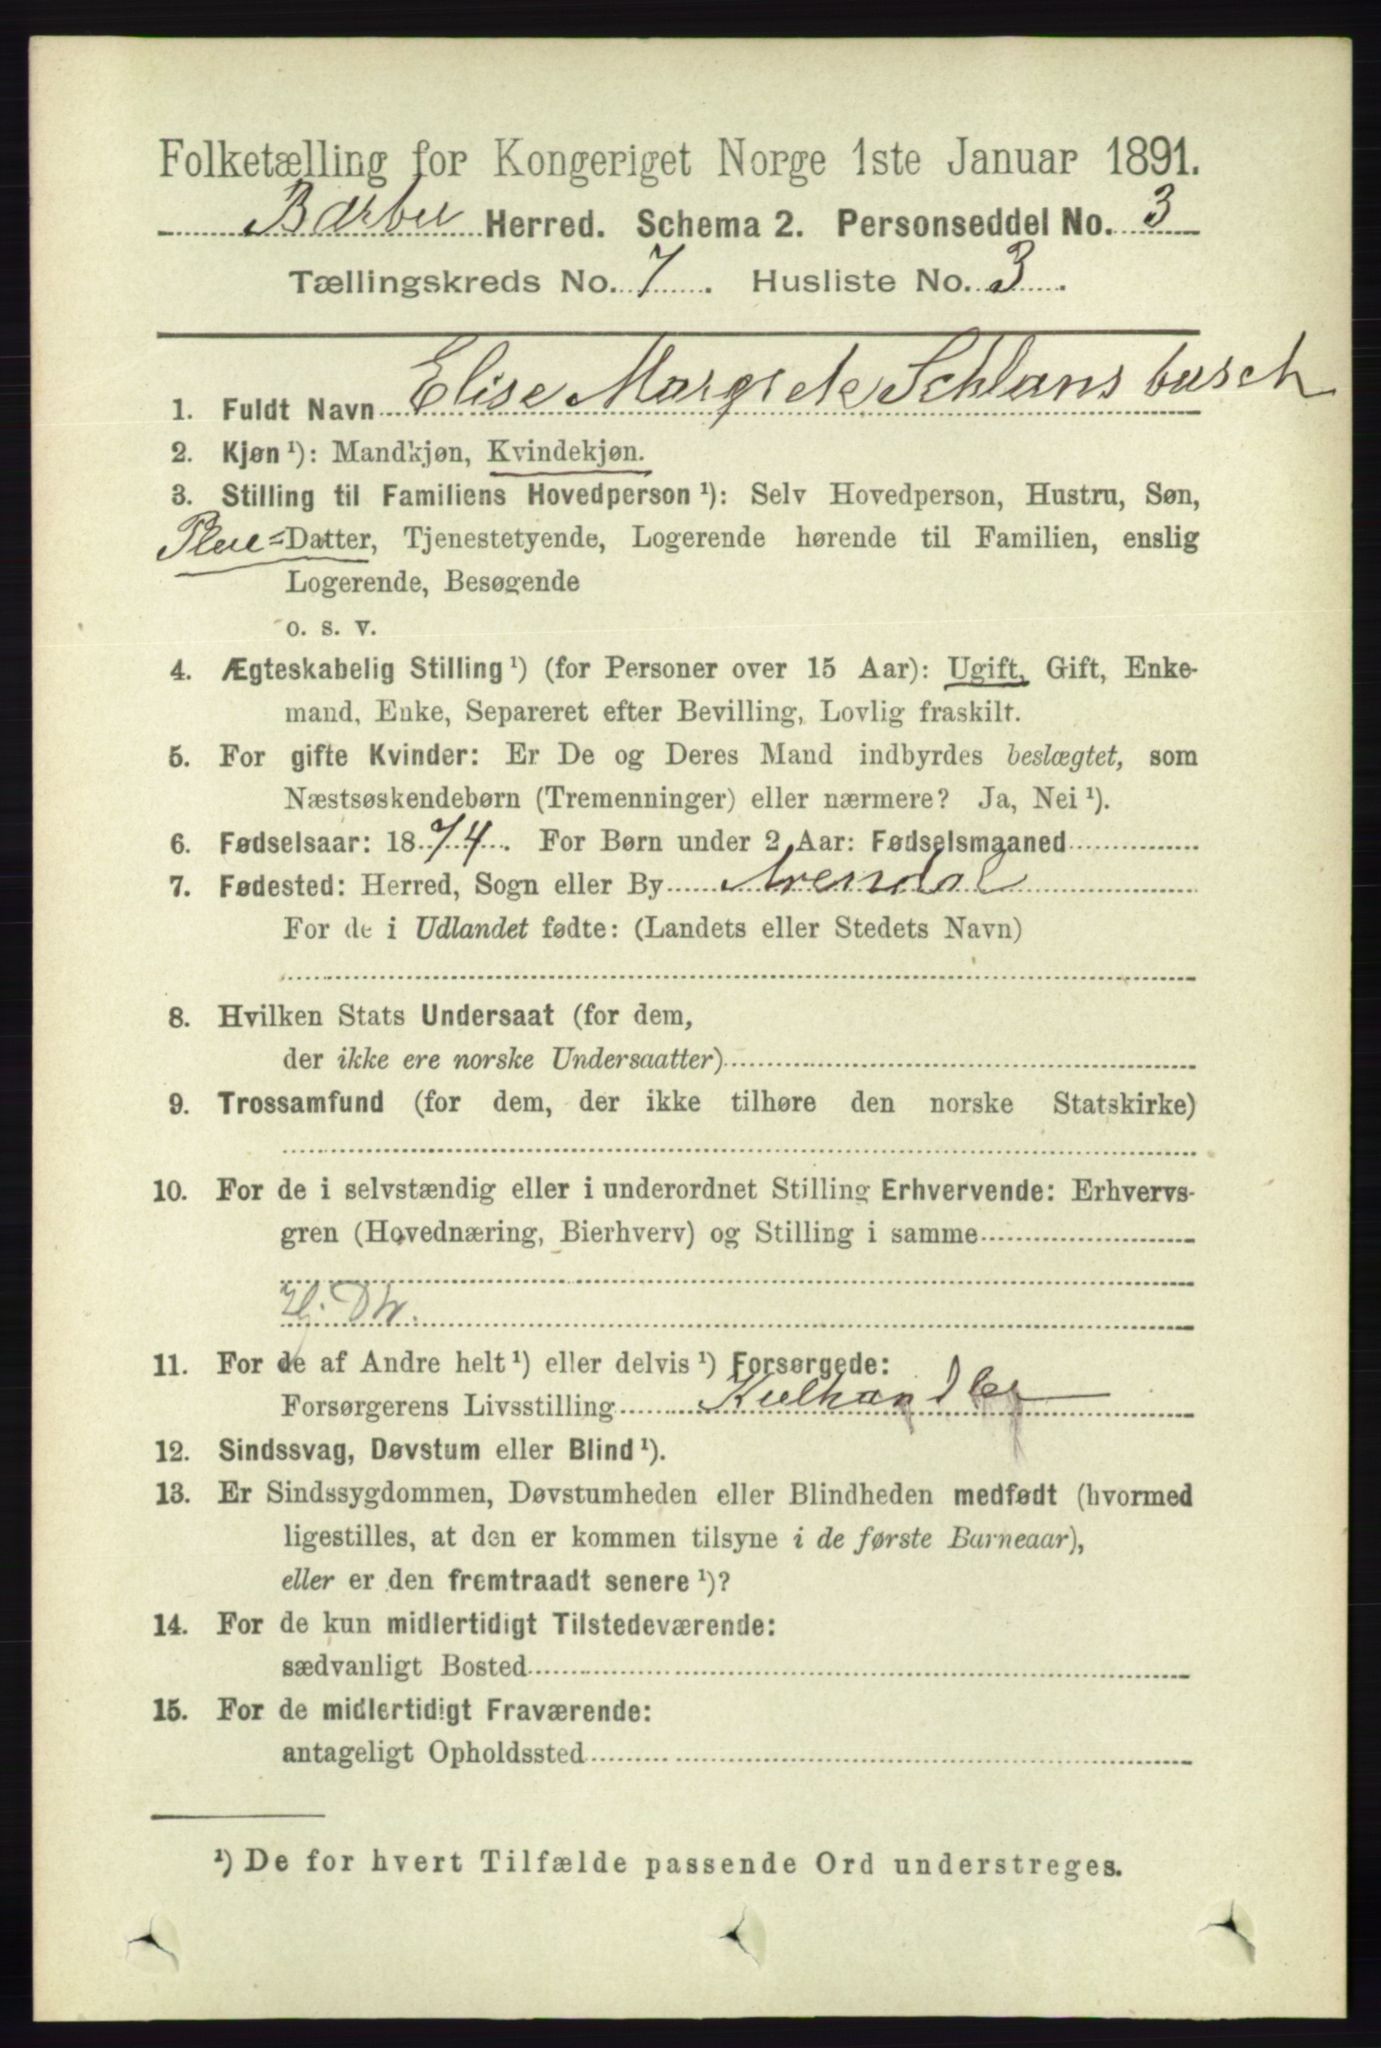 Folketælling for Kongeriget Norge 1ste Januar 1891.
Barbu Herred. Schema 2. Personseddel No. 3
Tællingskreds No. 7. Husliste No. 3.
1. Fuldt Navn Elise Margrete Schlansbusch
2. Kjøn ¹): Mandkjøn, Kvindekjøn.
3. Stilling til Familiens Hovedperson ¹): Selv Hovedperson, Hustru, Søn,
Pleie=Datter, Tjenestetyende, Logerende hørende til Familien, enslig
Logerende, Besøgende
o. s. v.
4. Ægteskabelig Stilling ¹) (for Personer over 15 Aar): Ugift, Gift, Enke-
mand, Enke, Separeret efter Bevilling, Lovlig fraskilt.
5. For gifte Kvinder: Er De og Deres Mand indbyrdes beslægtet, som
Næstsøskendebørn (Tremenninger) eller nærmere? Ja, Nei ¹).
6. Fødselsaar: 1874. For Børn under 2 Aar: Fødselsmaaned
7. Fødested: Herred, Sogn eller By Arendal
For de i Udlandet fødte: (Landets eller Stedets Navn)
8. Hvilken Stats Undersaat (for dem,
der ikke ere norske Undersaatter)
9. Trossamfund (for dem, der ikke tilhøre den norske Statskirke)
10. For de i selvstændig eller i underordnet Stilling Erhvervende: Erhvervs-
gren (Hovednæring, Bierhverv) og Stilling i samme
11. For de af Andre helt ¹) eller delvis ¹) Forsørgede:
Forsørgerens Livsstilling Kulhandler
12. Sindssvag, Døvstum eller Blind ¹).
13. Er Sindssygdommen, Døvstumheden eller Blindheden medfødt (hvormed
ligestilles, at den er kommen tilsyne i de første Barneaar),
eller er den fremtraadt senere ¹)?
14. For de kun midlertidigt Tilstedeværende:
sædvanligt Bosted
15. For de midlertidigt Fraværende:
antageligt Opholdssted
¹) De for hvert Tilfælde passende Ord understreges.